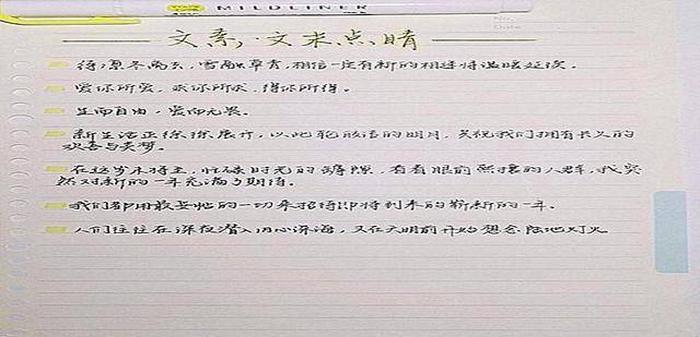 MILDLINER
No.
Date
文案·文末点睛
待凛冬离去，雪融草青，相信一定有新的相逢将温暖延续。
爱你所爱，求你所求，得你所得。
生而自由，爱而无畏。
新生活正徐徐展开，以此轮皎洁的明月，共祝我们拥有长久的
欢喜与美梦。
在这岁末将至，忙碌时光的罅隙，看看眼前熙攘的人群，我突
然对新的一年充满了期待。
我们都用最妥帖的一切来招待即将到来的崭新的一年。
人们往往在深夜潜入内心深海，又在天明前开始想念陆地灯火